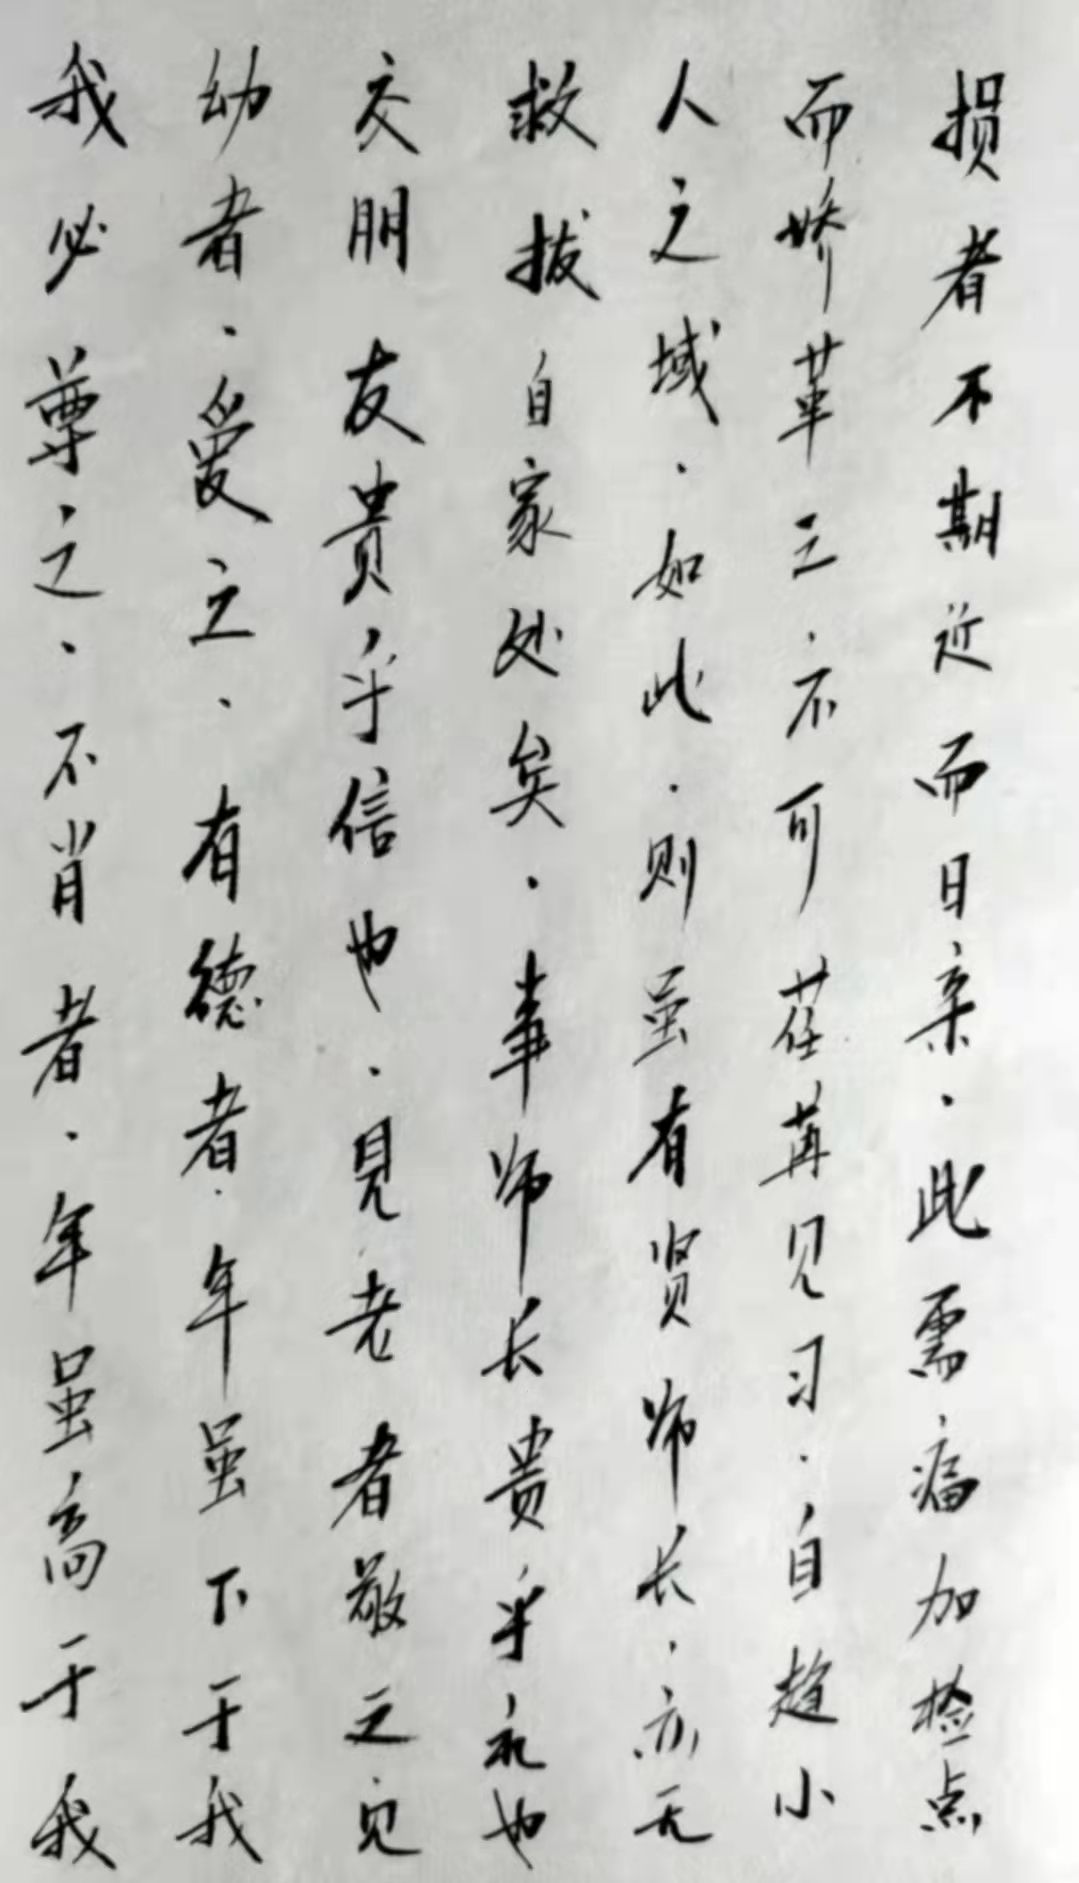 损者不期近而日亲·此需痛加检点
而娇革之·不可荏苒见习·自趋小
人之域·如此·则虽有贤师长·亦无
救拔自家处矣·事师长贵乎礼也
交朋友贵乎信也·見老者敬之·见
幼者·爱之·有德者·年虽下于我
我必尊之·不肖者·年虽高于我